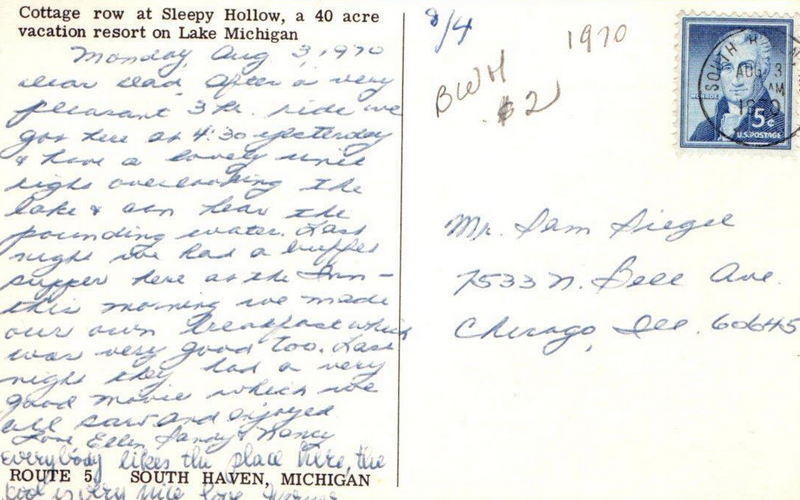 Cottage row at Sleepy Hollow, a 40 acre
vacation resort on Lake Michigan
Monday Aug 3, 1970
Dear Dad, After a very
pleasant 3 hr. ride we
got here at 4:30 yesterday
& have a lovely unit
right overlooking the
lake & can hear the
pounding water. Last
night we had a buffet
supper here at the Inn -
this morning we made
our own breakfast which
was very good too. Last
night they had a very
good movie which we
all saw and enjoyed
Love Ellen, Sandy & Nancy
everybody likes the place here, the
ROUTE 5, SOUTH HAVEN, MICHIGAN
pool is very nice love
8/4
1970
BWH
$2
SOUTH HAVEN
AUG 3
AM
1970
MONROE
5c
U.S. POSTAGE
Mr. Sam Siegel
7533 N. Bell Ave.
Chicago, Ill. 60645